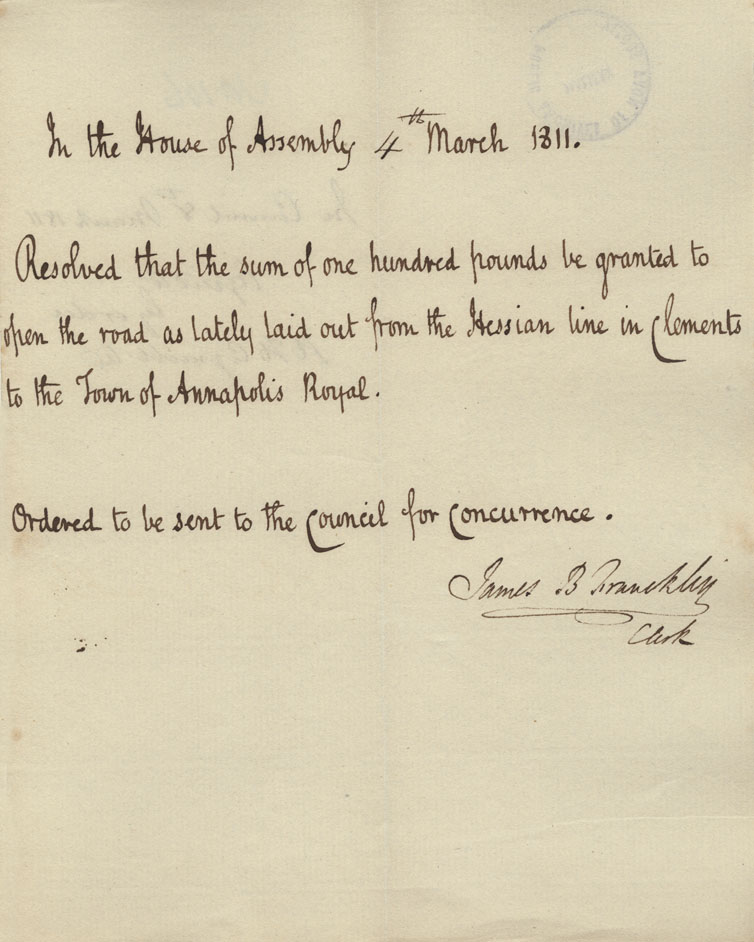 In the House of Assembly 4th March 1811.
Resolved that the sum of one hundred pounds be granted to
open the road as lately laid out from the Hessian line in Clements
to the Town of Annapolis Royal.
Ordered to be sent to the Council for Concurrence.
James B Francklin
Clerk